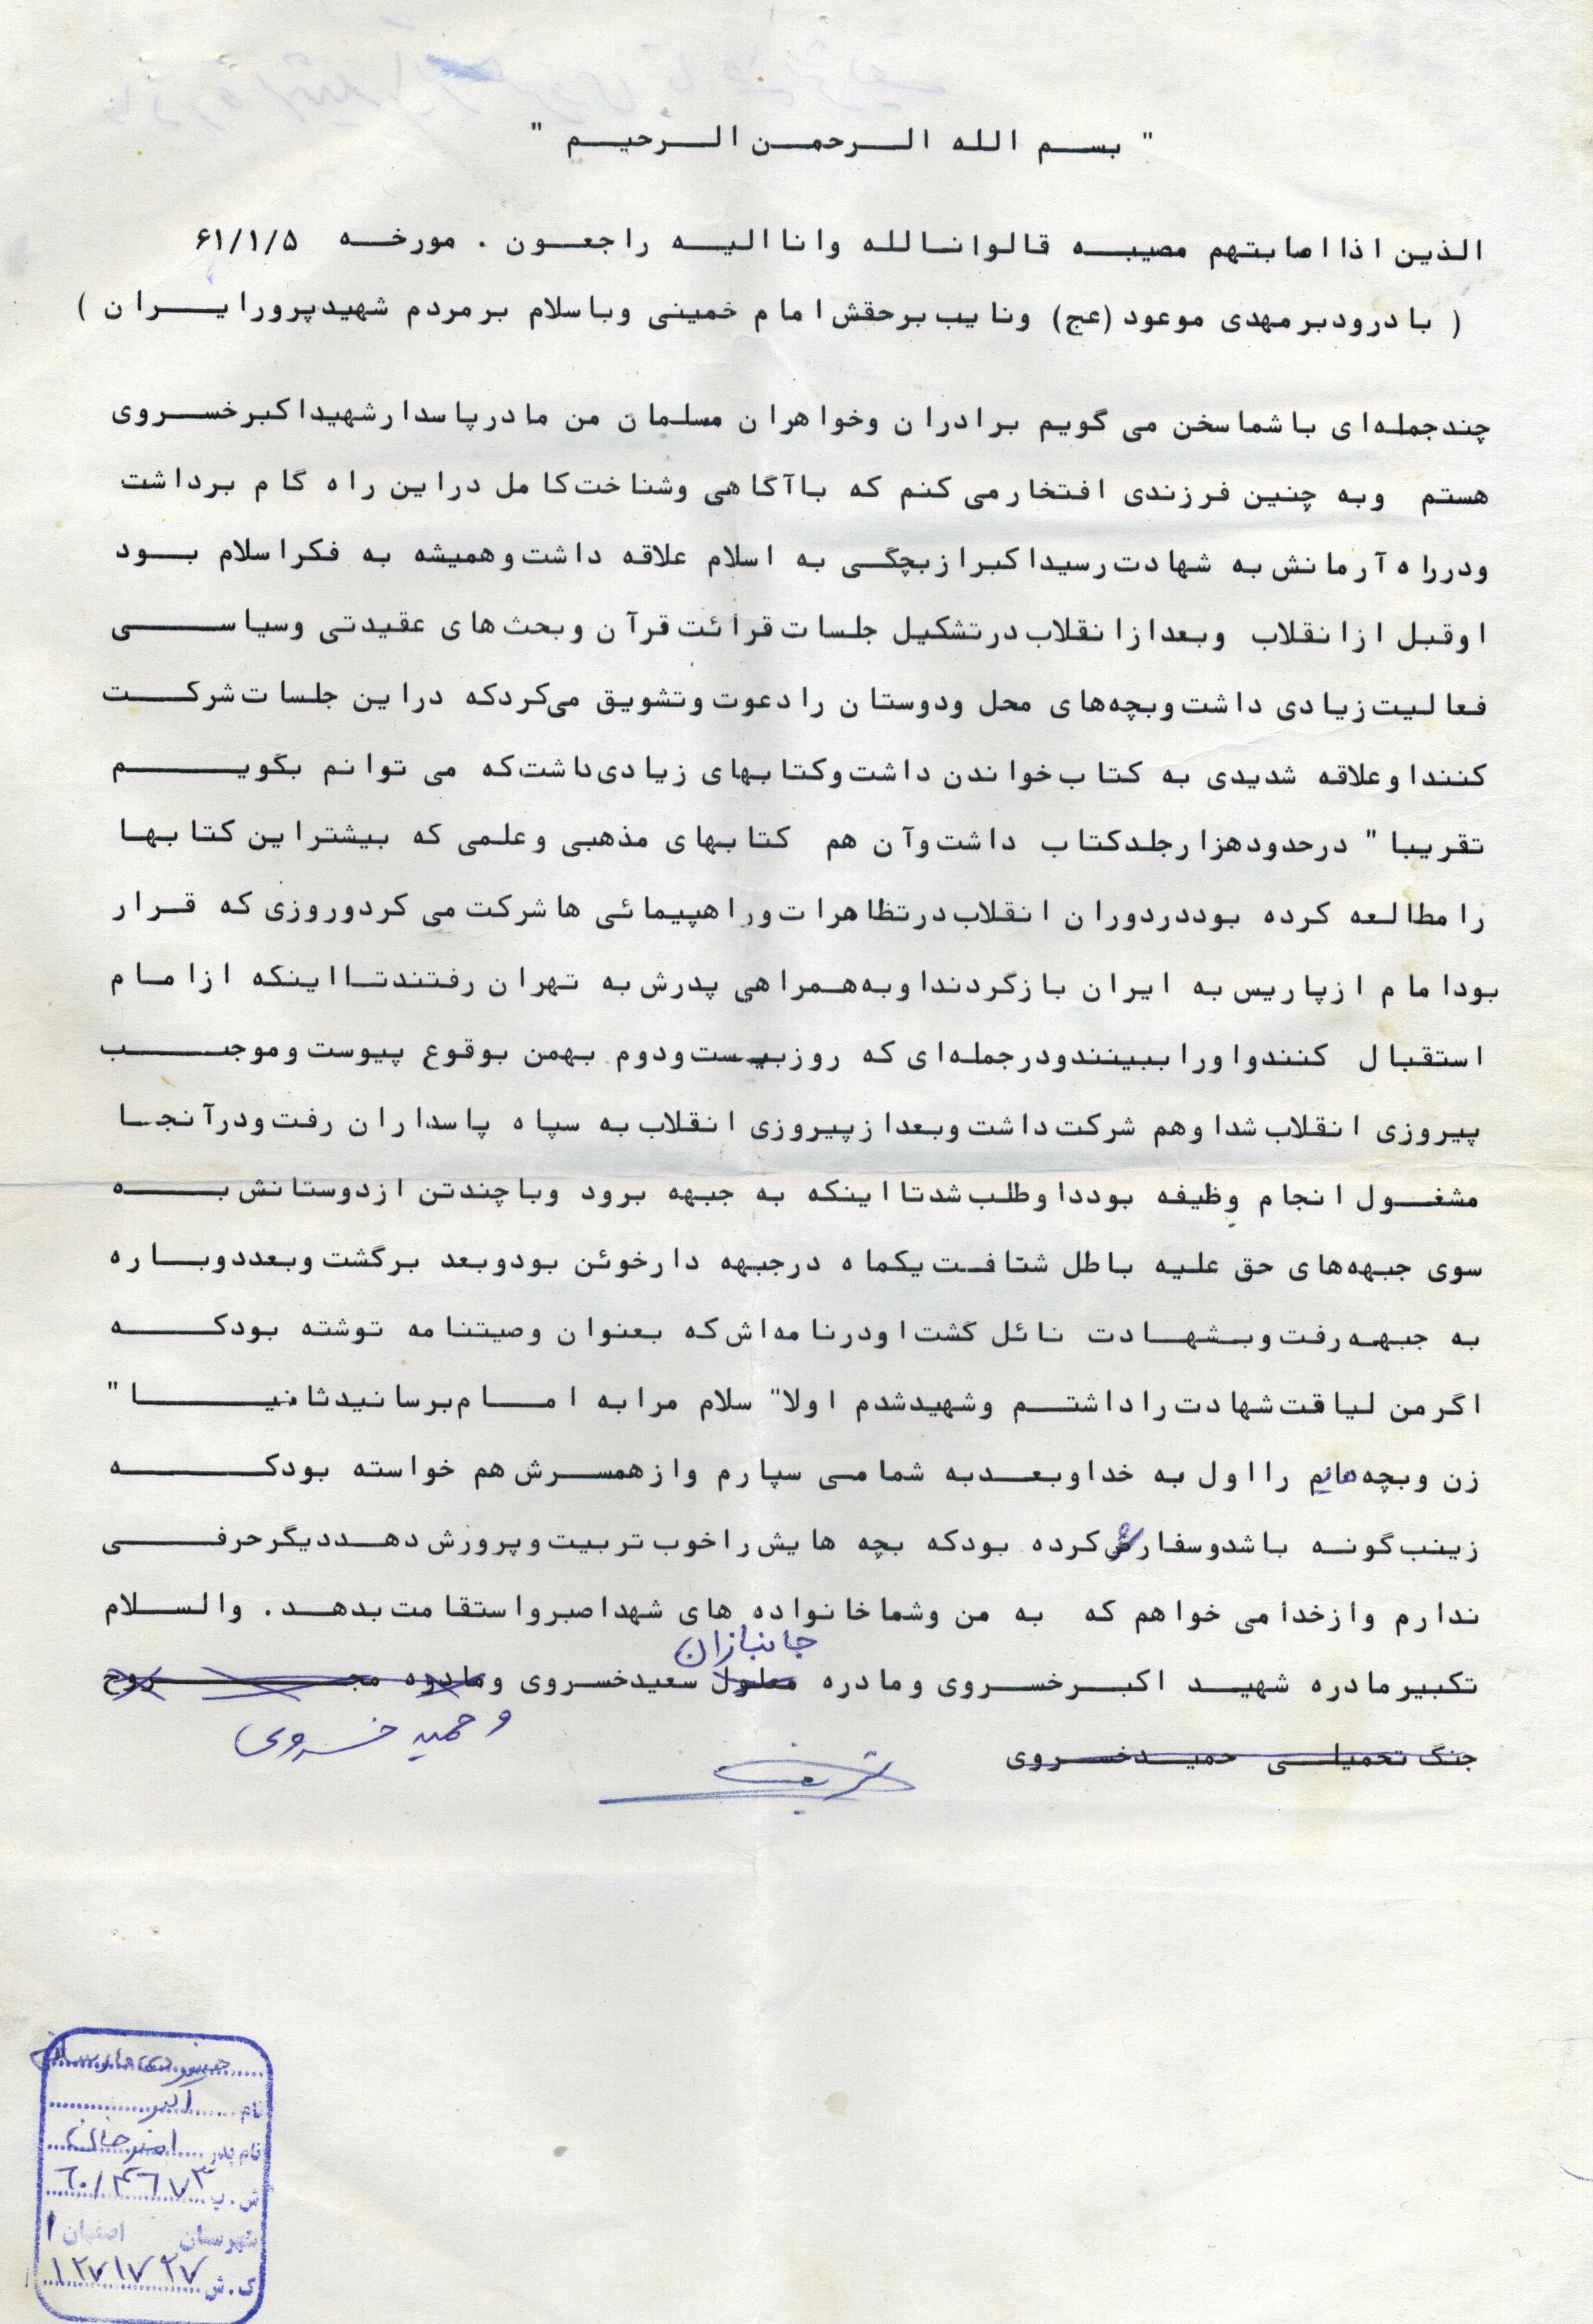 " بسم الله الرحمن الرحیم "
الذین اذا اصابتهم مصیبه قالوا انا لله وانا الیه راجعون . مورخه ۶۱/۱/۵
( با درود بر مهدی موعود (عج) ونایب برحقش امام خمینی وبا سلام بر مردم شهید پرور ایران )
چند جمله‌ای با شما سخن می گویم برادران وخواهران مسلمان من مادر پاسدار شهید اکبر خسروی
هستم وبه چنین فرزندی افتخار می کنم که با آگاهی وشناخت کامل در این راه گام برداشت
ودر راه آرمانش به شهادت رسید اکبر از بچگی به اسلام علاقه داشت وهمیشه به فکر اسلام بود
او قبل از انقلاب وبعد از انقلاب در تشکیل جلسات قرائت قرآن وبحث های عقیدتی وسیاسی
فعالیت زیادی داشت وبچه‌های محل ودوستان را دعوت وتشویق می‌کرد که در این جلسات شرکت
کنند او علاقه شدیدی به کتاب خواندن داشت وکتابهای زیادی داشت که می توانم بگویم
تقریبا " در حدود هزار جلد کتاب داشت وآن هم کتابهای مذهبی وعلمی که بیشتر این کتابها
را مطالعه کرده بود در دوران انقلاب در تظاهرات وراهپیمائی ها شرکت می کرد وروزی که قرار
بود امام از پاریس به ایران بازگردند او به همراهی پدرش به تهران رفتند تا اینکه از امام
استقبال کنند واورا ببینند ودر جمله‌ای که روز بیست ودوم بهمن بوقوع پیوست وموجب
پیروزی انقلاب شد او هم شرکت داشت وبعد از پیروزی انقلاب به سپاه پاسداران رفت ودر آنجا
مشغول انجام وظیفه بود داوطلب شد تا اینکه به جبهه برود وبا چند تن از دوستانش به
سوی جبهه‌های حق علیه باطل شتافت یکماه در جبهه دارخوئن بود وبعد برگشت وبعد دوباره
به جبهه رفت وبشهادت نائل گشت او در نامه‌اش که بعنوان وصیتنامه توشته بود که
اگر من لیاقت شهادت را داشتم وشهید شدم اولا" سلام مرا به امام برسانید ثانیا "
زن وبچه‌هایم را اول به خدا وبعد به شما می سپارم واز همسرش هم خواسته بود که
زینب گونه باشد وسفارش کرده بود که بچه هایش را خوب تربیت وپرورش دهد دیگر حرفی
ندارم واز خدا می خواهم که به من وشما خانواده های شهدا صبر واستقامت بدهد . والسلام
جانبازان
تکبیر مادره شهید اکبر خسروی ومادره معلول سعید خسروی ومادره مجروح
و حمید خسروی
جنگ تحمیلی حمید خسروی
نام اکبر
نام پدر
ش . پ ۶۰/۴۶۷۳
شهرستان اصفهان ۱
ک . ش ۱۲۷۱۷۲۷